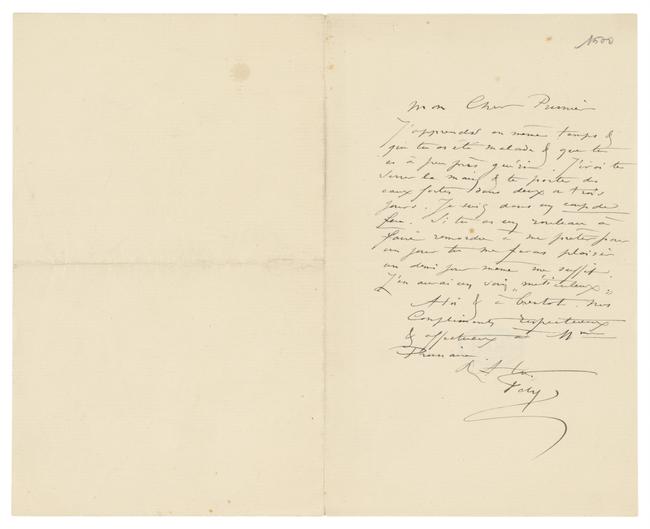 1500
mon Cher Prunier
J'apprends en même temps &
que tu as été malade & que tu
es à peu près guéri. J'irai te
serrer la main & te porter des
eaux fortes dans deux ou trois
jours. Je suis dans un coup de
feu. Si tu as un rouleau à
faire remordre à me prêter pour
un jour tu me feras plaisir
un demi jour même me suffit.
J'en aurai un soin "méticuleux"
A toi & à bientôt. nos
Compliments respectueux
& affectueux à Mme
Prunier